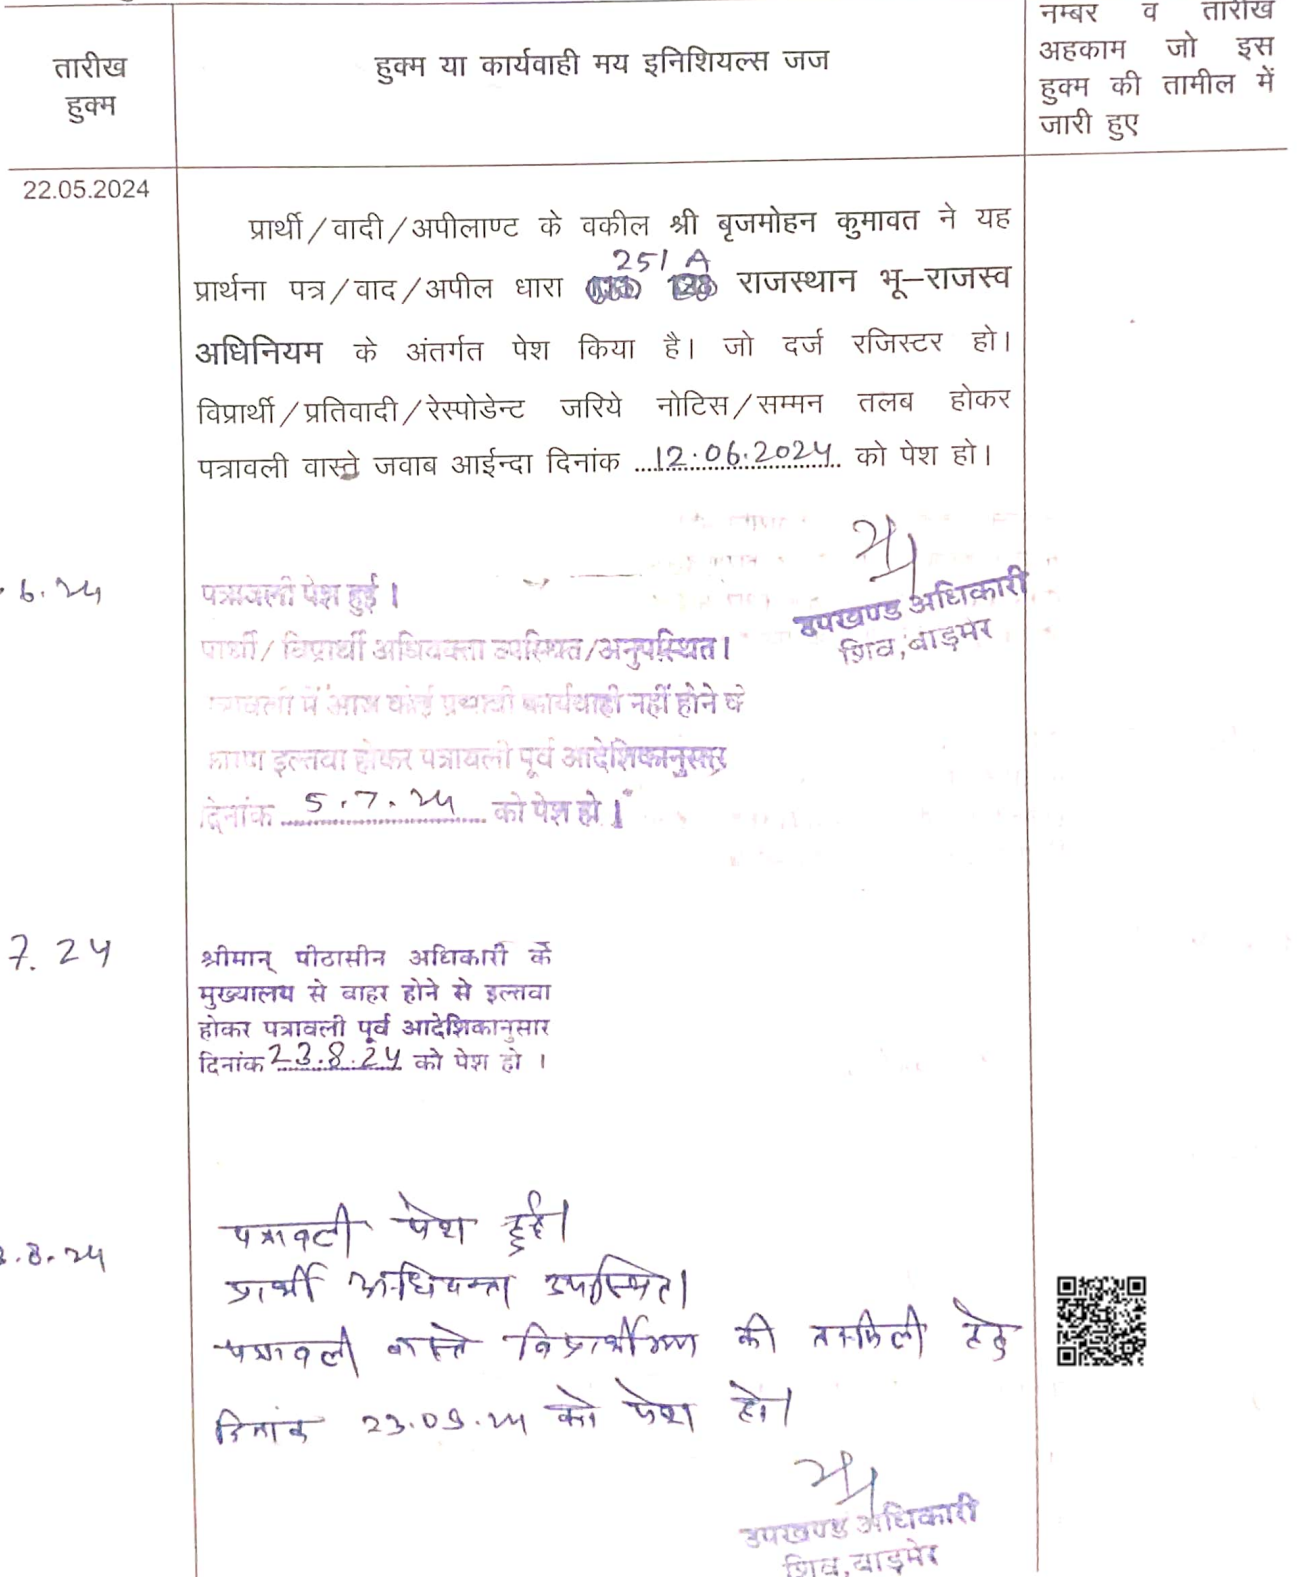 तारीख
हुक्म
हुक्म या कार्यवाही मय इनिशियल्स जज
नम्बर व तारीख
अहकाम जो इस
हुक्म की तामील में
जारी हुए
22.05.2024
प्रार्थी/वादी/अपीलाण्ट के वकील श्री बृजमोहन कुमावत ने यह
251 A
प्रार्थना पत्र/वाद/अपील धारा राजस्थान भू–राजस्व
अधिनियम के अंतर्गत पेश किया है। जो दर्ज रजिस्टर हो।
विप्रार्थी/प्रतिवादी/रेस्पोडेन्ट जरिये नोटिस/सम्मन तलब होकर
पत्रावली वास्ते जवाब आईन्दा दिनांक 12.06.2024 को पेश हो।
उपखण्ड अधिकारी
शिव, बाड़मेर
.6.24
पत्रावली पेश हुई।
प्रार्थी/विप्रार्थी अधिवक्ता उपस्थित/अनुपस्थित।
में आज कोई प्रभावी कार्यवाही नहीं होने के
इल्तवा होकर पत्रावली पूर्व आदेशिकानुसार
दिनांक 5.7.24 को पेश हो।
7.24
श्रीमान् पीठासीन अधिकारी के
मुख्यालय से बाहर होने से इल्तवा
होकर पत्रावली पूर्व आदेशिकानुसार
दिनांक 23.8.24 को पेश हो ।
.8.24
पत्रावली पेश हुई।
प्रार्थी अधिवक्ता उपस्थित।
पत्रावली वास्ते विप्रार्थीगण की तामिली हेतु
दिनांक 23.09.24 को पेश हो।
उपखण्ड अधिकारी
शिव, बाड़मेर